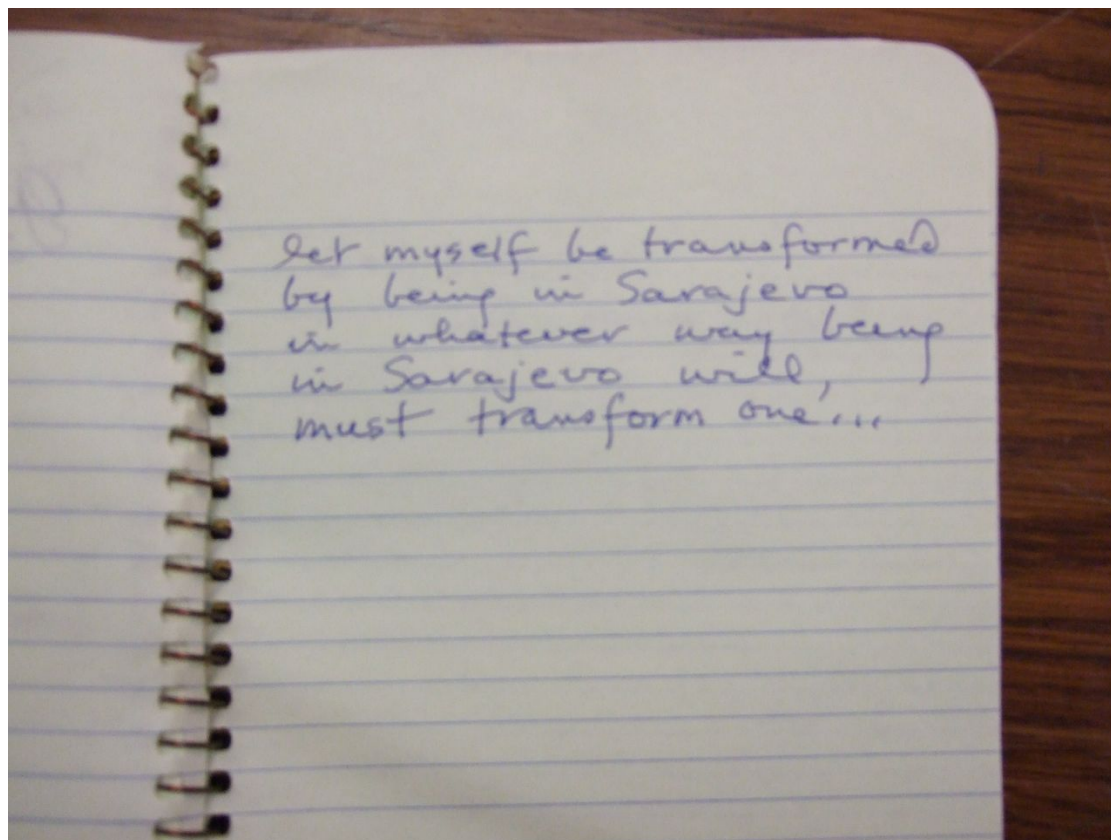 let myself be transformed
by being in Sarajevo
in whatever way being
in Sarajevo will,
must transform one...